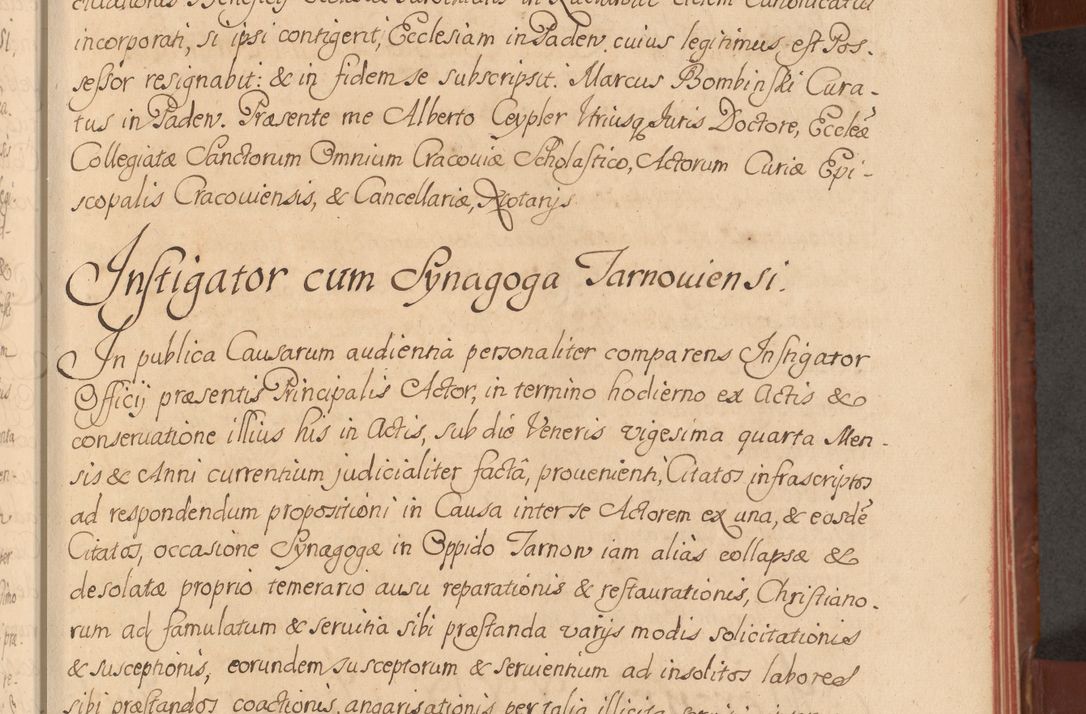 incorporati, si ipsi contigerit, Ecclesiam in Paden. cuius legitimus est Pos-
sessor resignabit: & in fidem se subscripsit. Marcus Bombinski Cura-
tus in Paden. Præsente me Alberto Ceypler Utriusq Juris Doctore, Eccleæ
Collegiatæ Sanctorum Omnium Cracouiæ Scholastico, Actorum Curiæ Epi-
scopalis Cracouiensis, & Cancellariæ, Notarijs
Instigator cum Synagoga Tarnouiensi.
In publica Causarum audientia personaliter comparens Instigator
Officij præsentis Principalis Actor, in termino hodierno ex Actis &
conseruatione illius his in Actis, sub die Veneris vigesima quarta Men-
sis & Anni currentium judicialiter factâ, prouenienti, Citatos infrascriptos
ad respondendum propositioni in Causa inter se Actorem ex una, & eosdē
Citatos, occasione Synagogæ in Oppido Tarnow iam aliàs collapsæ &
desolatæ proprio temerario ausu reparationis & restaurationis, Christiano-
rum ad famulatum & seruitia sibi præstanda varijs modis solicitationis
& susceptionis, eorundem susceptorum & seruientium ad insolitos labores
sibi præstandos coactionis, angarisationis per talia illicita